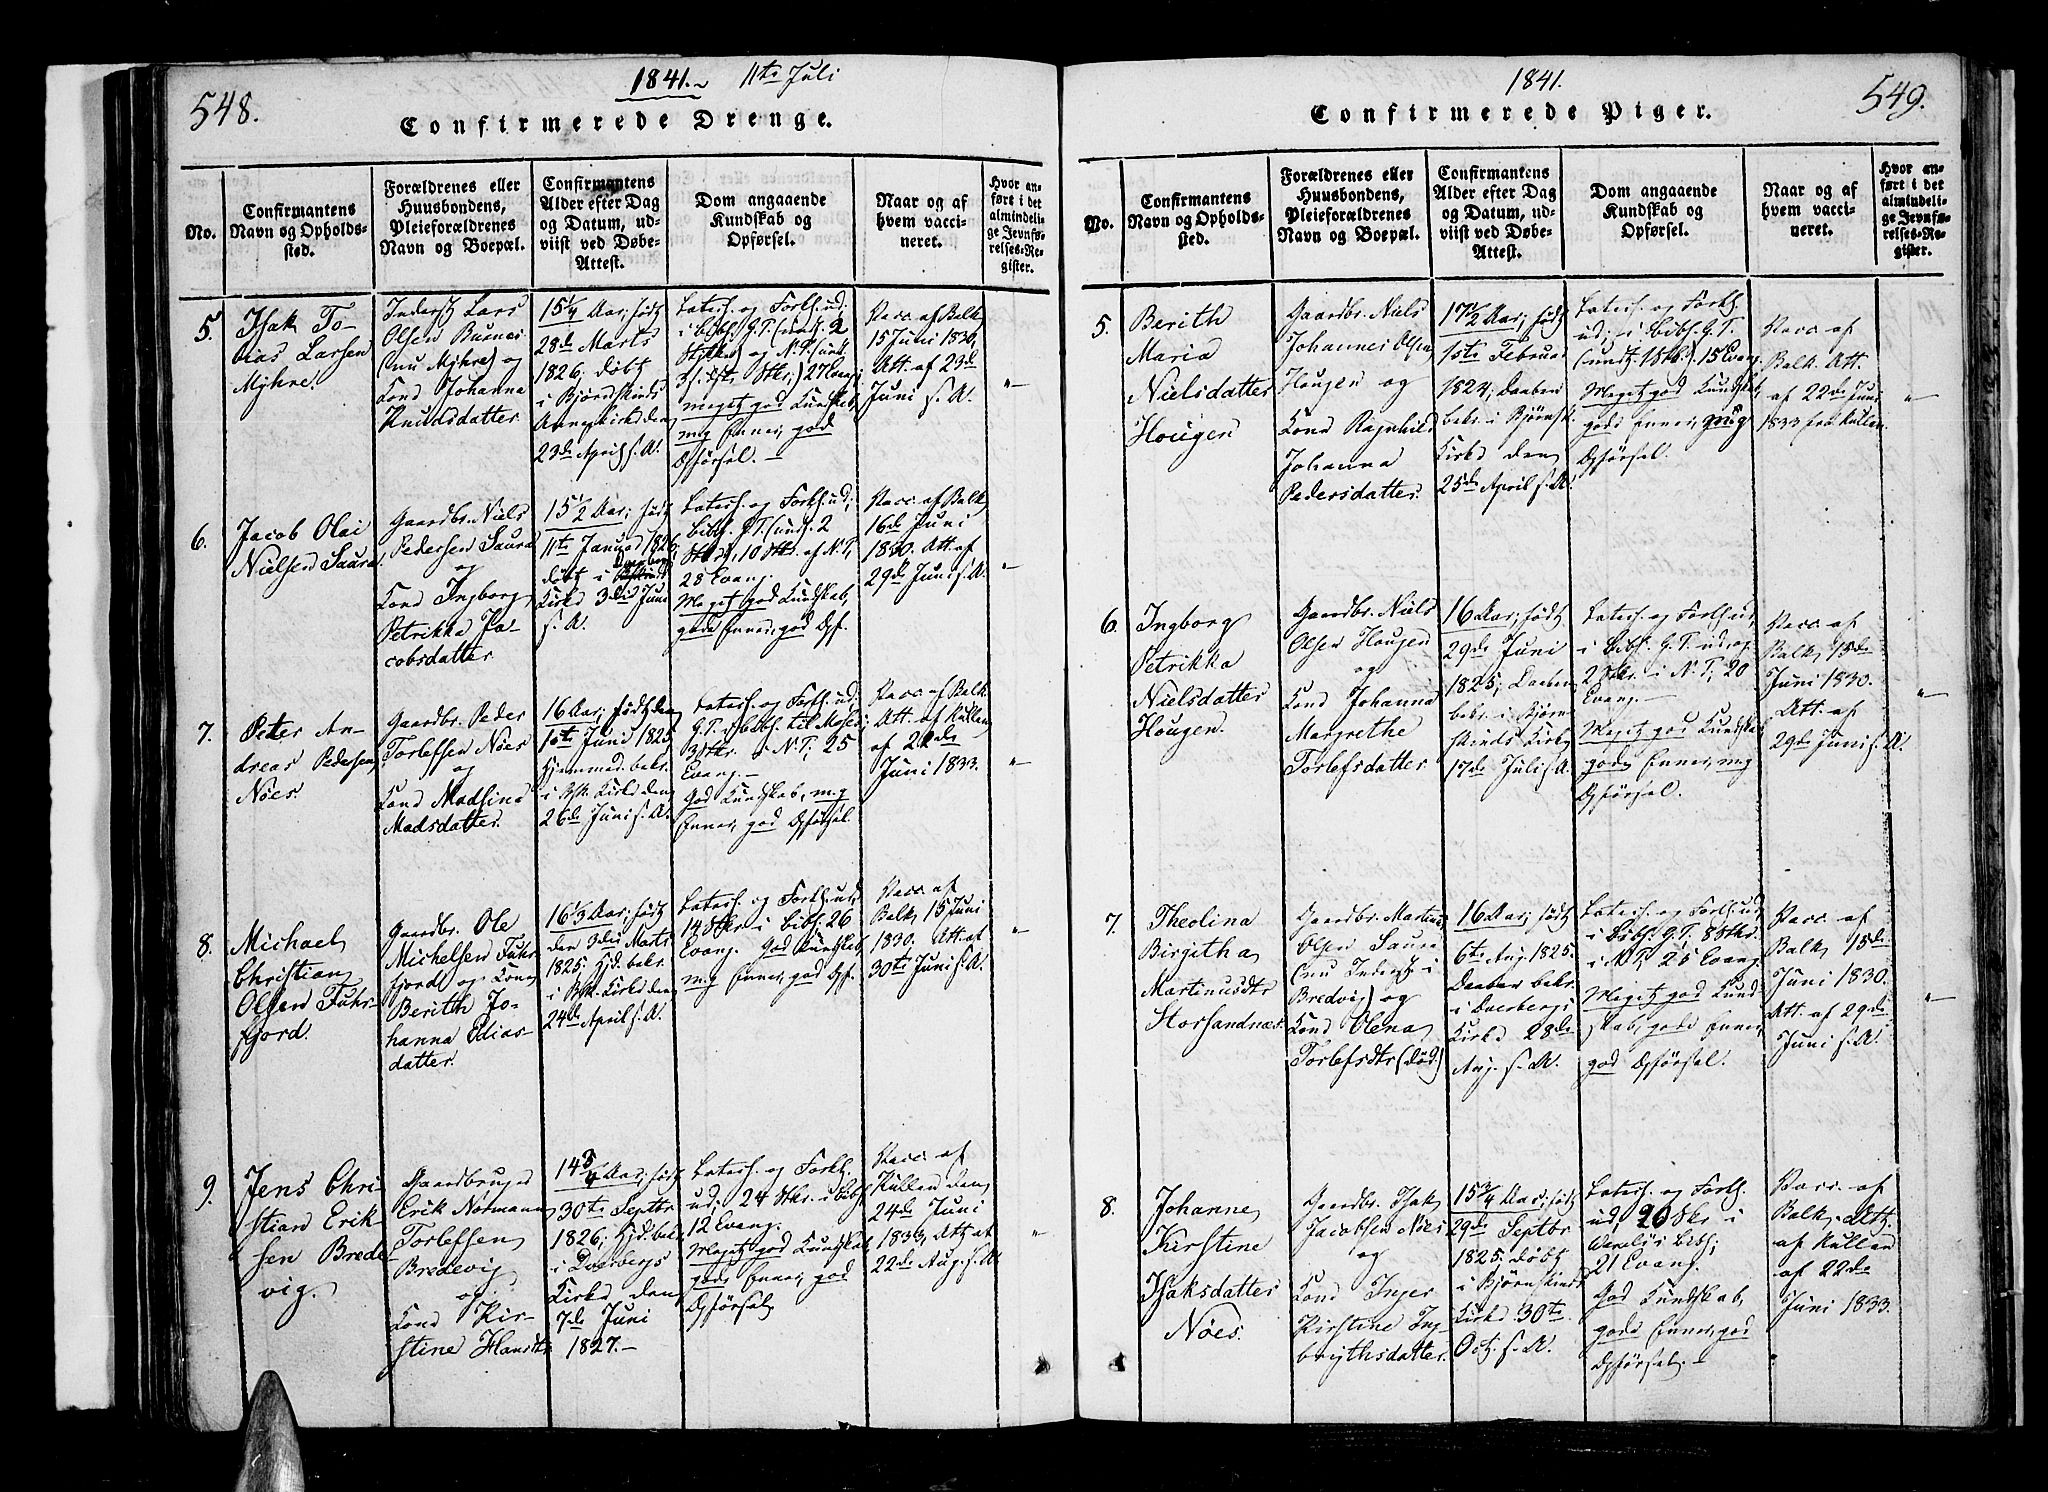 548.
1841. 11te Juli
Confirmerede Drenge.
No.
Confirmantens
Navn og Opholds-
sted.
Forældrenes eller
Huusbondens,
Pleieforældrenes
Navn og Boepæl.
Confirmantens
Alder efter Dag
og Datum, ud-
viist ved Døbe-
Attest.
Dom angaaende
Kundskab og
Opførsel.
Naar og af
hvem vacci-
neret.
Hvor an-
ført i det
almindeli-
ge Jevnfø-
relses-Re-
gister.
5.
Isak To-
Larsen
Myhre.
Inderst Lars
Olsen Buenes
(nu Myhre) og
Kone Johanna
Knudsdatter.
15 1/4 Aar; født
28de Marts
1826; døbt
i Bjørnskinds
Annexkirke den
23de April s. A.
Catech. og Forkl. ud;
i bibl. G.T. (undt. 2
Stykker) og N.T. (undt.
3 Stkr.) 27 Evang.
meget god Kundskab,
mg Evner, god
Opførsel. –
Vacc. af Balk
15 Juni 1830,
Att. af 23de
Juni s. A.
"
6.
Jacob Olai
Nielsen Saura.
Gaardbr. Niels
Pedersen Saura
og
Kone Ingborg
Petrikka Ja-
cobsdatter
15 1/2 Aar; født
11te Januar 1826,
døbt i Dverbergs
Kirke 3die Juni
s. A.
Catech. og Forkl. ud;
bibl. G.T. (undt. 2
Stkr.), 10 Stkr. af N.T.,
28 Evang.
Meget god Kundskab,
gode Evner, god Opf.
Vacc. af Balk
16de Juni
1830. Att. af
29de Juni s. A.
"
7.
Peter An-
dreas Pedersen
Nöes.
Gaardbr. Peder
Torlefsen Nöes
og
Kone Madsina
Madsdatter.
16 Aar; født den
1ste Juni 1825,
Hjemmed. bekr.
i Bsk. Kirke den
26de Juni s. A.
Catech. og Forkl. ud;
G.T. i bibl. til Moses;
3 Stkr. i N.T., 25
Evang. –
God Kundskab, m.g
Evner, god Opførsel.
Vacc. af Balk
Att. af Kullen
af 22de
Juni 1833.
"
8.
Michael
Christian
Olsen Fuhr-
fjord.
Gaardbr. Ole
Michelsen Fuhr-
fjord og Kone
Berith Jo-
hanna Elias-
datter.
16 1/3 Aar; født
den 3die Marts
1825, Hjd. bekr.
i Bsk. Kirke den
24de April s. A.
Catech. og Forkl. ud,
14 Stkr i bibl. 26
Evang. God Kundskab,
m.g Evner, god Opf.
Vacc. af
Balk 15 Juni
1830. Att. af
30te Juni s. A.
"
9.
Jens Chri-
stian Erik-
sen Brede-
vig.
Gaardbruger
Erik Normann
Torlefsen
Bredevig
og
Kone Kir-
stine Hansdtr
14 3/4 Aar; født
30te Septbr
1826; Hjd. bekr.
i Dverbergs
Kirke den
7de Juni
1827. –
Catech. og Forkl.
ud; 24 Stkr. i bibl.
12 Evang.
Meget god Kundskab,
gode Evner, god
Opførsel
Vacc. af
Kullen den
24de Juni
1833, Att. af
22de Aug. s. A
"
549.
1841.
Confirmerede Piger.
No.
Confirmantens
Navn og Opholds-
sted.
Forældrenes eller
Huusbondens,
Pleieforældrenes
Navn og Boepæl.
Confirmantens
Alder efter Dag
og Datum, ud-
viist ved Døbe-
Attest.
Dom angaaende
Kundskab og
Opførsel.
Naar og af
hvem vacci-
neret.
Hvor an-
ført i det
almindeli-
ge Jevnfø-
relses-Re-
gister.
5.
Berith
Maria
Nielsdatter
Hougen
Gaardbr. Niels
Johannes Olsen
Hougen og
Kone Ragnhild
Johanna
Pedersdatter.
17 1/2 Aar; født
1ste Februar
1824; Daaben
bekr. i Bjørnsk.
Kirke den
25de April s. A.
Catech. og Forkl.
ud; i bibl. G.T.
15 Evang.
Meget god Kundskab,
gode Evner, god
Opførsel.
Vacc. af
Balk. Att.
af 22de Juni
1833 fra Kullen.
"
6.
Ingborg
Petrikka
Nielsdatter
Hougen.
Gaardbr. Niels
Olsen Hougen
og
Kone Johanna
Margrethe
Torlefsdatter
16 Aar; født
29de Juni
1825; Daaben
bekr. i Bjørn-
skinds Kirke
17de Juli s. A.
Catech. og Forkl. ud,
i bibl. G.T. ud, og
2 Stkr. i N.T; 20
Evang. –
Meget god Kundskab
gode Evner, m g
Opførsel.
Vacc. af
Balk 15de
Juni 1830.
Att. af
29de Juni s. A.
"
7.
Theolina
Birgitha
Martinusdtr
Storsandnæs.
Gaardbr. Martinus
Olsen Saura
(nu Inderst i
Bredvig) og
Kone Olena
Torlefsdtr (død)
16 Aar; født
6te Aug. 1825.
Daaben bekr.
i Dverbergs
Kirke 28de
Aug. s. A.
Catech. og Forkl. ud,
i bibl. G.T. 8 Stkr.
i N.T, 25 Evang.
Meget god Kund-
skab, gode Evner,
god Opførsel.
Vacc. af
Balk, 15de
Juni 1830.
Att. af 29de
Juni s. A.
"
8.
Johanne
Kirstine
Isaksdatter
Nöes.
Gaardbr. Isak
Jacobsen Nöes
og
Kone Inger
Kirstine Ing-
brigthsdatter.
15 3/4 Aar; født
29de Septbr
1825. døbt
i Bjørnskinds
Kirke 30te
Oct. s. A.
Catech. og Forkl.
ud, 20 Stkr. i
bibl;
21 Evang.
God Kundskab,
gode Evner, god
Opførsel. –
Vacc. af
Balk. Att.
af Kullen
af 22de
Juni 1833.
"